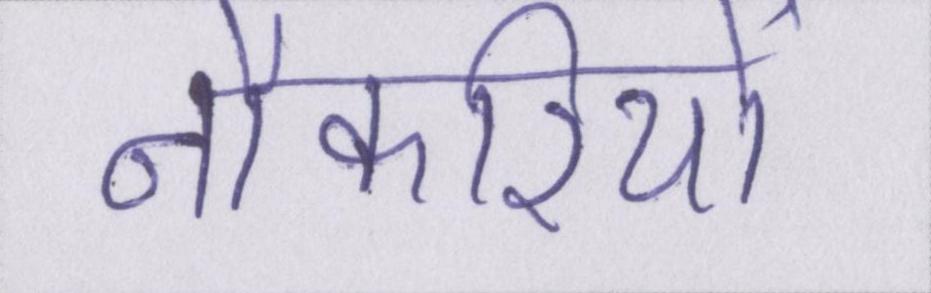 नौकरियों